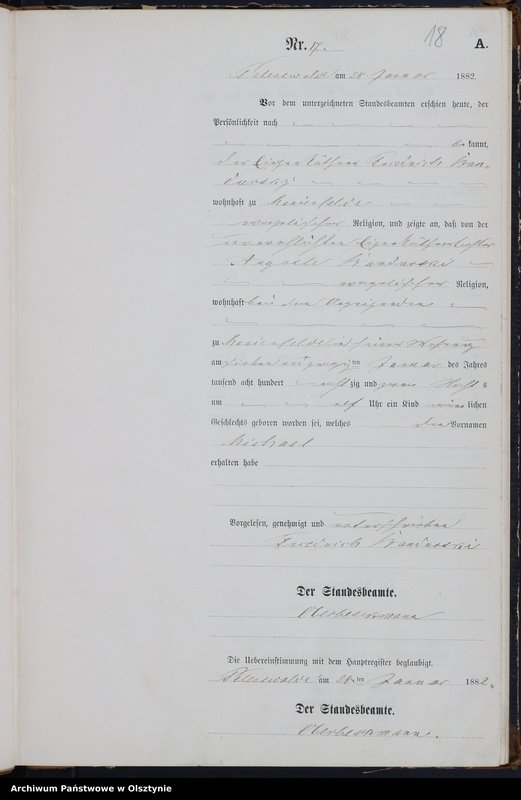 18
Nr. 17. A.
am 28 Januar 1882.
Vor dem unterzeichneten Standesbeamten erschien heute, der
Persönlichkeit nach
bekannt,
der Eigenkäthner Friedrich Ban-
durski
wohnhaft zu Marienfelde
evangelischer Religion, und zeigte an, daß von der
unverehelichten Eigenkäthnertochter
Auguste Bandurski
evangelischer Religion,
wohnhaft bei dem Anzeigenden
zu Marienfelde in seiner Wohnung
am sieben und zwanzigten Januar des Jahres
tausend acht hundert achtzig und zwei Nachts
um elf Uhr ein Kind männlichen
Geschlechts geboren worden sei, welches den Vornamen
Michael
erhalten habe
Vorgelesen, genehmigt und unterschrieben
Friedrich Bandurski
Der Standesbeamte.
Die Uebereinstimmung mit dem Hauptregister beglaubigt.
am 28ten Januar 1882.
Der Standesbeamte.
Archiwum Państwowe w Olsztynie